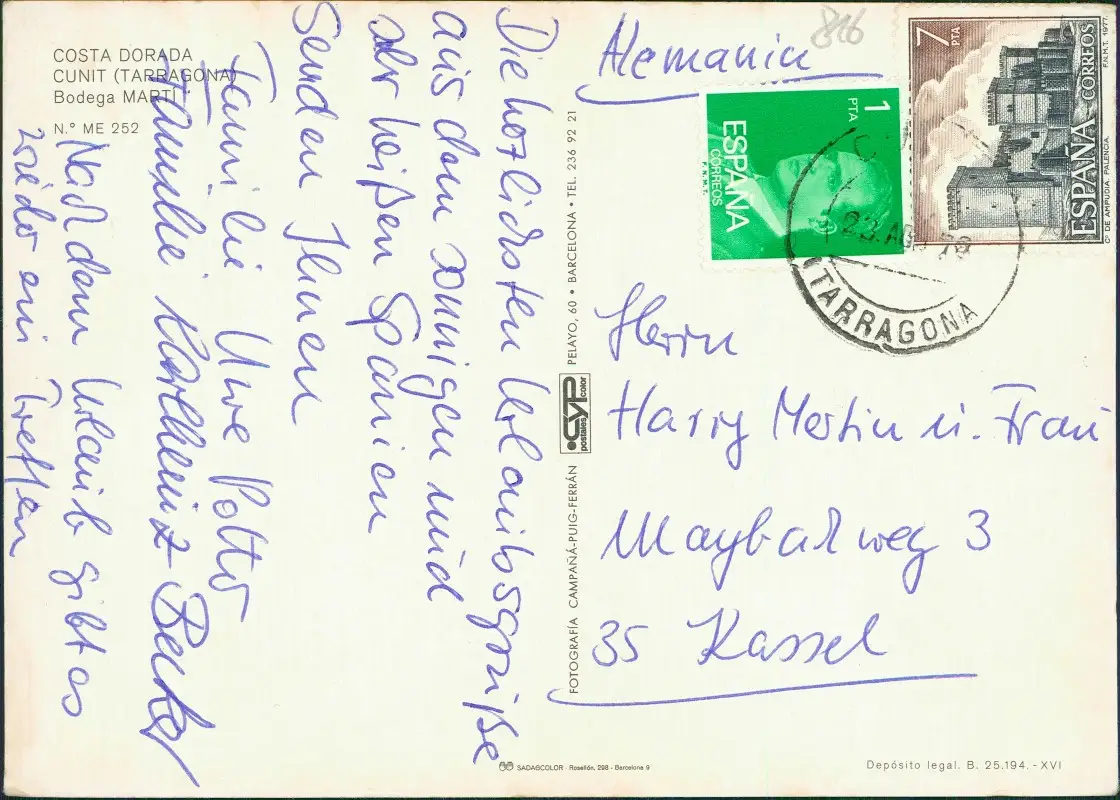 COSTA DORADA
CUNIT (TARRAGONA)
Bodega MARTÍ
N.° ME 252
Die herzlichsten Urlaubsgrüße
aus dem sonnigen und
sehr heißen Spanien
senden Ihnen
Familie Uwe
Familie Karlheinz Becker
Nach dem Urlaub gibt es
wieder ein Treffen
FOTOGRAFÍA CAMPAÑÁ-PUIG-FERRÁN
CYP
postales color
PELAYO, 60 • BARCELONA • TEL. 236 92 21
816
Alemania
1 PTA
ESPAÑA
CORREOS
F.N.M.T.
7 PTA
ESPAÑA CORREOS
C° DE AMPUDIA. PALENCIA.
F.N.M.T. 1977
23. AGO
TARRAGONA
Herrn
Harry Mertin u. Frau
Maybachweg 3
35 Kassel
SADAGCOLOR - Rosellón, 298 - Barcelona 9
Depósito legal. B. 25.194. - XVI